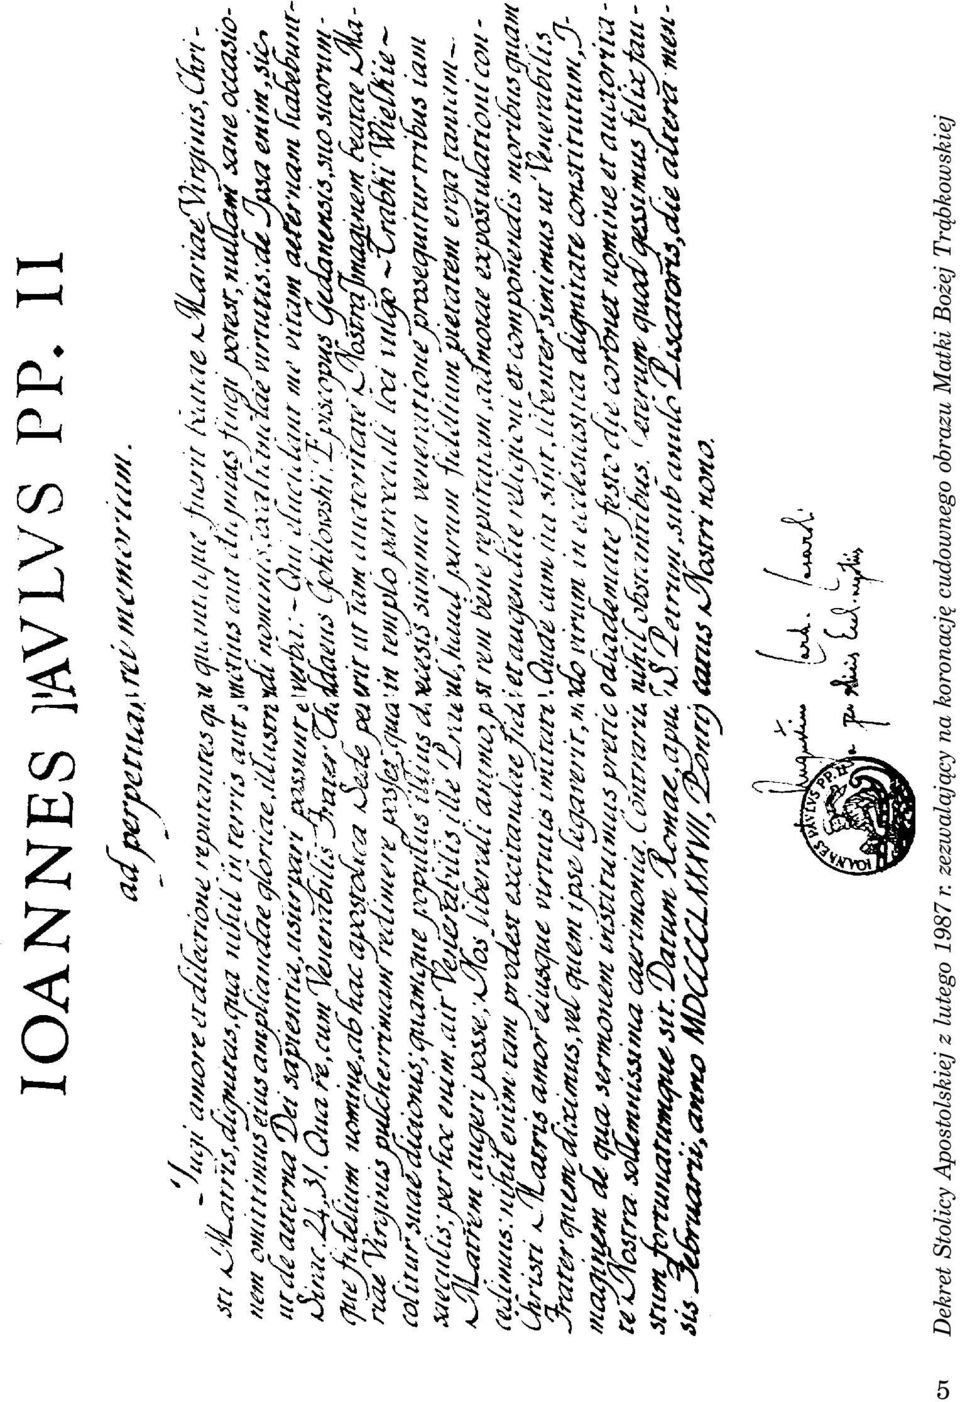 IOANNES PAVLVS PP. II
ad perpetuam rei memoriam.
Iugi amore et dilectione reputantes quae quantaque fuerit Mariae Virginis, Chri-
sti Matris, dignitas, qua nihil in terris aut fungi potest, nullam sane occasio-
nem omittimus eius ampliandae gloriae, illustrandi nominis, virtutis. de Ipsa enim, sic-
ut de aeterna Dei sapientia, usurpari possunt verba: - Qui elucidant me vitam aeternam habebunt -
Sirac. 24, 31. Qua re, cum Venerabilis Frater Thaddaeus Gochłowski Episcopus Gedanensis, suo suorum-
que fidelium nomine, ab hac apostolica Sede petierit ut iam auctoritate Nostra Imaginem beatae Ma-
riae Virginis pulcherrimam redimere posset, quae in templo loci vulgo ~ Trąbki Wielkie ~
colitur suae dicionis; quamque populus illius dioecesis summa veneratione prosequitur tribus iam
saeculis; per hoc enim, ait Venerabilis ille Praesul, haud parum fidelium pietatem erga tantam
Matrem augeri posse, Nos liberali animo, post rem bene reputatam, admotae expostulationi con-
cedimus: nihil enim tam prodest excitandae fidei et augendae religioni et componendis moribus quam
Christi Matris amor eiusque virtutis imitatio. Quae cum ita sint, libenter sinimus ut Venerabilis
Frater quem diximus, vel quem ipse legaverit, modo virum in ecclesiastica dignitate constitutum, I-
maginem de qua sermonem instituimus pretioso diademate festo die coronet nomine et auctorita-
te Nostra sollemnissima caerimonia. Contrariis nihil obstantibus. Ceterum quod gessimus felix fau-
stum fortunatumque sit. Datum Romae, apud S. Petrum, sub anulo Piscatoris, die altera men-
sis Februarii, anno MDCCCCLXXXVII, Pontificatus Nostri nono.
Augustinus Card. Casaroli
IOANNES PAVLVS PP. II
5 Dekret Stolicy Apostolskiej z lutego 1987 r. zezwalający na koronację cudownego obrazu Matki Bożej Trąbkowskiej